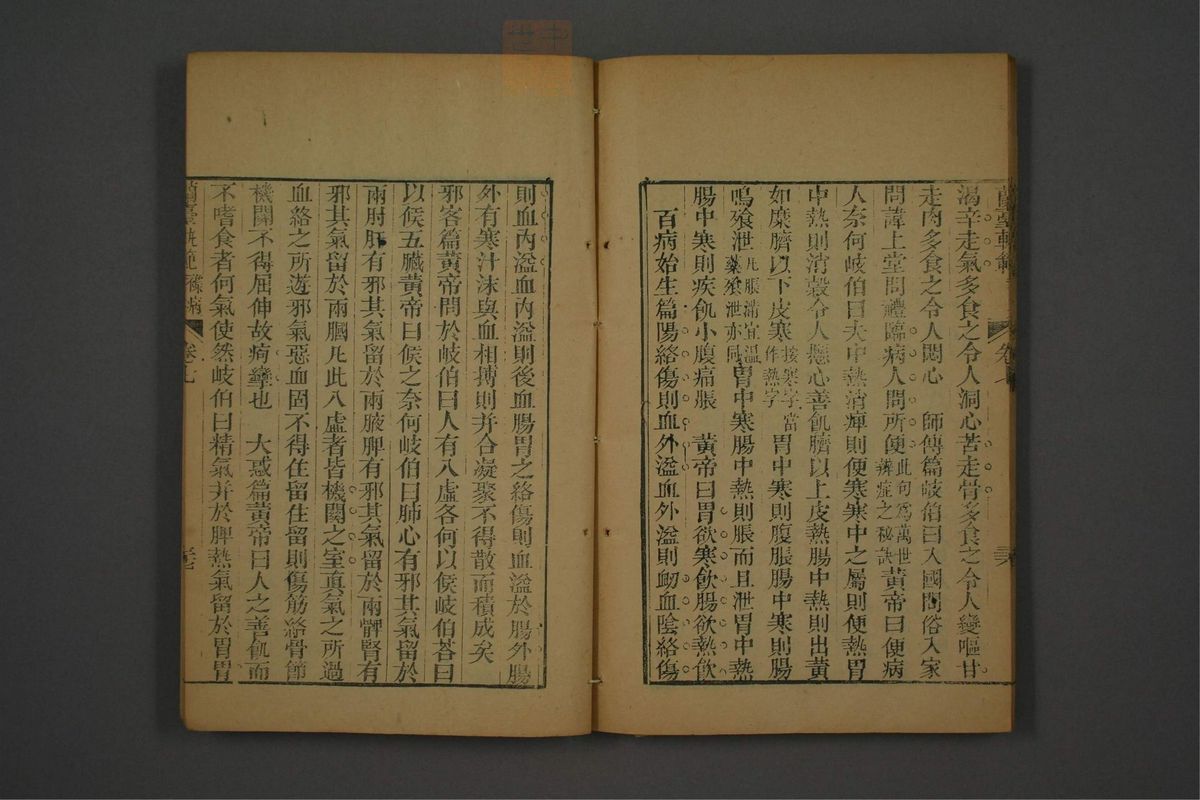 蘭臺軌範 卷七
渴辛走氣多食之令人洞心苦走骨多食之令人變嘔甘
走肉多食之令人悶心 師傳篇岐伯曰入國問俗入家
問諱上堂問禮臨病人問所便此句爲萬世辨症之秘訣黃帝曰便病
人奈何岐伯曰夫中熱消癉則便寒寒中之屬則便熱胃
中熱則消穀令人懸心善飢臍以上皮熱腸中熱則出黃
如糜臍以下皮寒按寒字當作熱字胃中寒則腹脹腸中寒則腸
鳴飧泄凡脹滿宜溫藥飧泄亦同胃中寒腸中熱則脹而且泄胃中熱
腸中寒則疾飢小腹痛脹 黃帝曰胃欲寒飲腸欲熱飲
百病始生篇陽絡傷則血外溢血外溢則衂血陰絡傷
則血內溢血內溢則後血腸胃之絡傷則血溢於腸外腸
外有寒汁沫與血相搏則并合凝聚不得散而積成矣
邪客篇黃帝問於岐伯曰人有八虛各何以候岐伯荅曰
以候五臟黃帝曰候之奈何岐伯曰肺心有邪其氣留於
兩肘肝有邪其氣留於兩腋脾有邪其氣留於兩髀腎有
邪其氣留於兩膕凡此八虛者皆機關之室眞氣之所過
血絡之所遊邪氣惡血固不得住留住留則傷筋絡骨節
機關不得屈伸故痀攣也 大惑篇黃帝曰人之善飢而
不嗜食者何氣使然岐伯曰精氣并於脾熱氣留於胃胃
蘭臺軌範 卷七